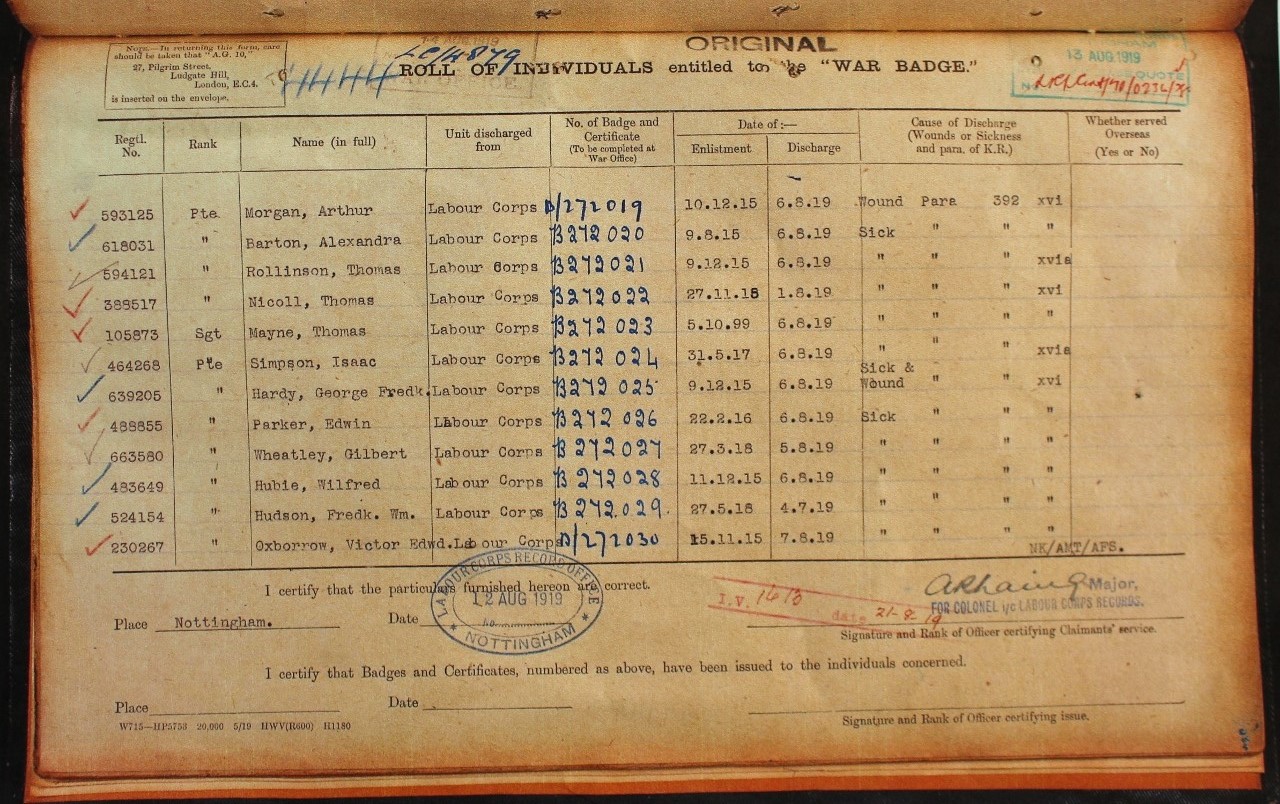 NOTE.—In returning this form, care
should be taken that "A.G. 10,"
27, Pilgrim Street,
Ludgate Hill,
London, E.C.4.
is inserted on the envelope.
LC/4879
ORIGINAL
13 AUG 1919
QUOTE
ROLL OF INDIVIDUALS entitled to the "WAR BADGE."
Regtl. No. Rank Name (in full) Unit discharged from No. of Badge and Certificate (To be completed at War Office) Date of :— Enlistment Discharge Cause of Discharge (Wounds or Sickness and para. of K.R.) Whether served Overseas (Yes or No)
593125 Pte. Morgan, Arthur Labour Corps B/272019 10.12.15 6.8.19 Wound Para 392 xvi
618031 " Barton, Alexandra Labour Corps B272020 9.8.15 6.8.19 Sick " " "
594121 " Rollinson, Thomas Labour Corps B272021 9.12.15 6.8.19 " " " xvia
388517 " Nicoll, Thomas Labour Corps B272022 27.11.15 1.8.19 " " " xvi
105873 Sgt Mayne, Thomas Labour Corps B272023 5.10.99 6.8.19 " " " "
464268 Pte Simpson, Isaac Labour Corps B272024 31.5.17 6.8.19 " " " xvia
639205 " Hardy, George Fredk. Labour Corps B272025 9.12.15 6.8.19 Sick & Wound " " xvi
488855 " Parker, Edwin Labour Corps B272026 22.2.16 6.8.19 Sick " " "
663580 " Wheatley, Gilbert Labour Corps B272027 27.3.18 5.8.19 " " " "
483649 " Hubie, Wilfred Labour Corps B272028 11.12.15 6.8.19 " " " "
524154 " Hudson, Fredk. Wm. Labour Corps B272029. 27.5.18 4.7.19 " " " "
230267 " Oxborrow, Victor Edwd. Labour Corps B/272030 15.11.15 7.8.19 " " " "
NK/AMT/AFS.
I certify that the particulars furnished hereon are correct.
LABOUR CORPS RECORD OFFICE
12 AUG 1919
No.
NOTTINGHAM
I.V. 1413
date 21-8-19
Major,
FOR COLONEL i/c LABOUR CORPS RECORDS.
Place Nottingham. Date
Signature and Rank of Officer certifying Claimants' service.
I certify that Badges and Certificates, numbered as above, have been issued to the individuals concerned.
Place Date
W715—HP5753 20,000 5/19 HWV(R600) H1180
Signature and Rank of Officer certifying issue.